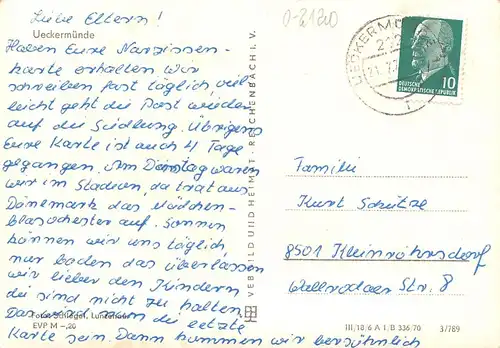 0-2120
Liebe Eltern!
Ueckermünde
Haben Eure Narzissen-
karte erhalten wir
schreiben fast täglich, viel
leicht geht die Post wieder
auf die Siedlung. Übrigens
Eure Karte ist auch 4 Tage
gegangen. Am Dienstag waren
wir im Stadion, da trat aus
Dänemark das Mädchen-
blasorchester auf. Sonnen
können wir uns täglich,
nur baden das überlassen
wir lieber den Kindern
die sind nicht zu halten
Das wird die letzte
Karte sein. Dann kommen wir
UECKERM
21.7
10
DEUTSCHE
DEMOKRATISCHE REPUBLIK
VEB BILD UND HEIMAT · REICHENBACH I. V.
Familie
Kurt Schütze
8501 Kleinröhrsdorf
Wallrodaer Str. 8
Foto: Schlegel,
EVP M –,20
III/18/6 A 1 B 336/70 3/789